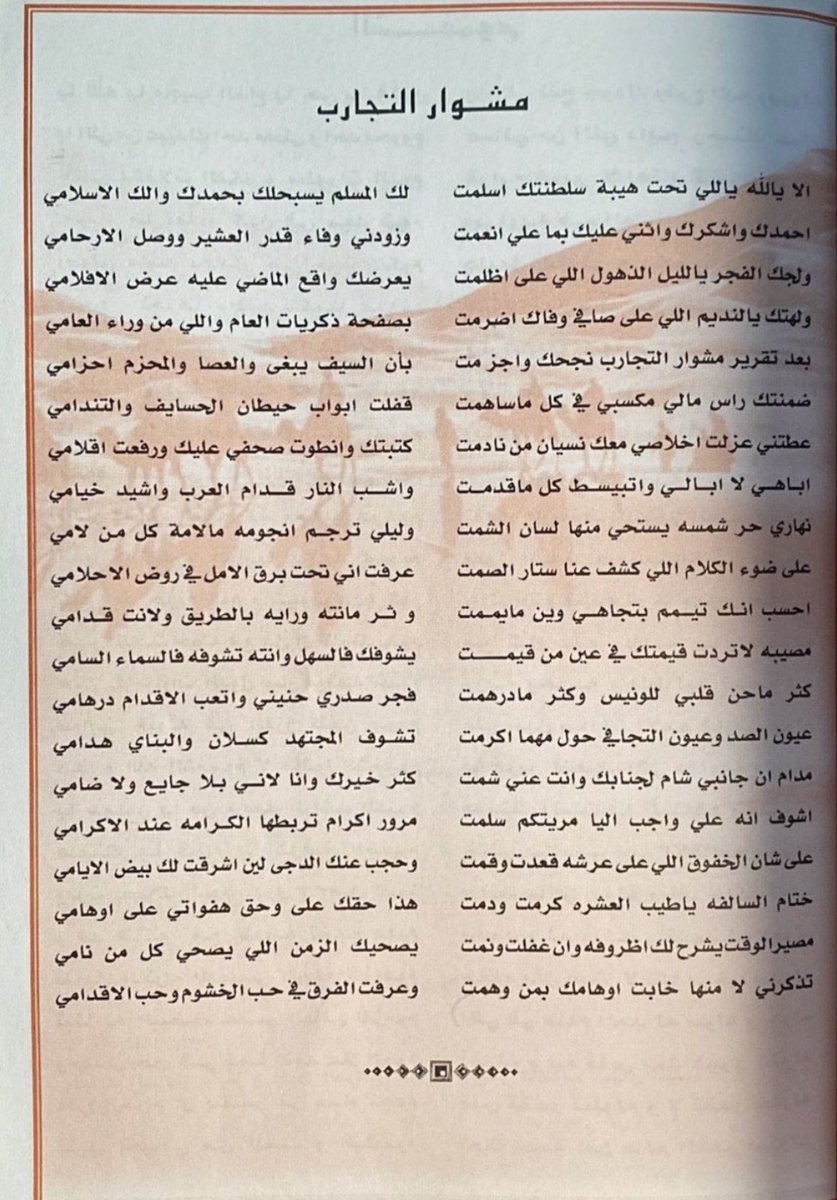 مشوار التجارب
الا يالله ياللي تحت هيبة سلطنتك اسلمت لك المسلم يسبحلك بحمدك والك الاسلامي
احمدك واشكرك واثني عليك بما علي انعمت وزودني وفاء قدر العشير ووصل الارحامي
ولجك الفجر يالليل الذهول اللي على اظلمت يعرضك واقع الماضي عليه عرض الافلامي
ولهتك يالنديم اللي على صافي وفاك اضرمت بصفحة ذكريات العام واللي من وراء العامي
بعد تقرير مشوار التجارب نجحك واجز مت بأن السيف يبغى والعصا والمحزم احزامي
ضمنتك راس مالي مكسبي في كل ماساهمت قفلت ابواب حيطان الحسايف والتندامي
عطتني عزلت اخلاصي معك نسيان من نادمت كتبتك وانطوت صحفي عليك ورفعت اقلامي
اباهي لا ابالي واتبيسط كل ماقدمت واشب النار قدام العرب واشيد خيامي
نهاري حر شمسه يستحي منها لسان الشمت وليلي ترجم انجومه مالامة كل من لامي
على ضوء الكلام اللي كشف عنا ستار الصمت عرفت اني تحت برق الامل في روض الاحلامي
احسب انك تيمم بتجاهي وين مايممت و ثر مانته ورايه بالطريق ولانت قدامي
مصيبه لاتردت قيمتك في عين من قيمت يشوفك فالسهل وانته تشوفه فالسماء السامي
كثر ماحن قلبي للونيس وكثر مادرهمت فجر صدري حنيني واتعب الاقدام درهامي
عيون الصد وعيون التجافي حول مهما اكرمت تشوف المجتهد كسلان والبناي هدامي
مدام ان جانبي شام لجنابك وانت عني شمت كثر خيرك وانا لاني بلا جايع ولا ضامي
اشوف انه علي واجب اليا مريتكم سلمت مرور اكرام تربطها الكرامه عند الاكرامي
على شان الخفوق اللي على عرشه قعدت وقمت وحجب عنك الدجى لين اشرقت لك بيض الايامي
ختام السالفه ياطيب العشره كرمت ودمت هذا حقك على وحق هفواتي على اوهامي
مصير الوقت يشرح لك اظروفه وان غفلت ونمت يصحيك الزمن اللي يصحي كل من نامي
تذكرني لا منها خابت اوهامك بمن وهمت وعرفت الفرق في حب الخشوم وحب الاقدامي